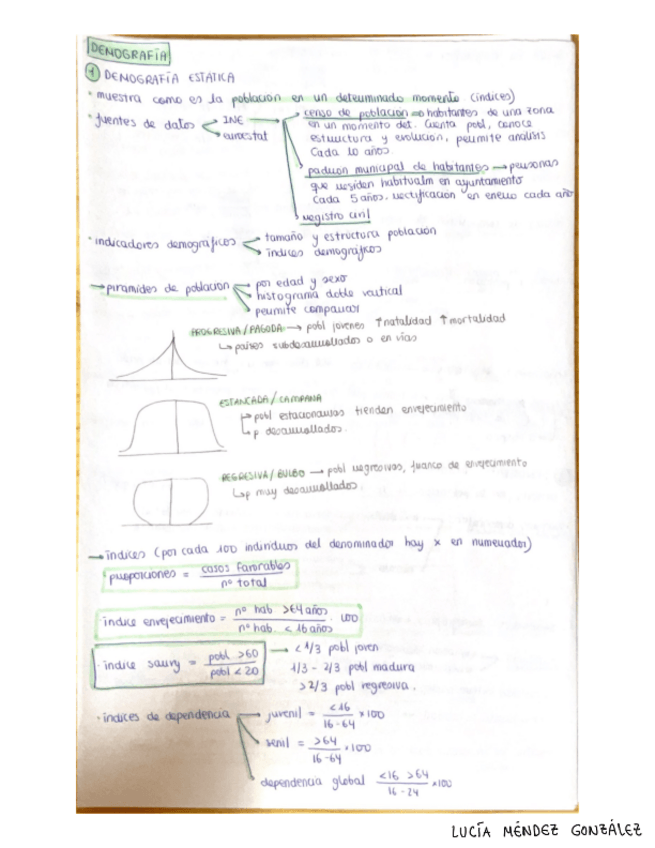 DEMOGRAFÍA
1 DEMOGRAFÍA ESTÁTICA
· muestra como es la población en un determinado momento (índices)
· fuentes de datos
INE
eurostat
censo de población → habitantes de una zona
en un momento det. Cuenta pobl, conoce
estructura y evolución, permite análisis
Cada 10 años.
padrón municipal de habitantes → personas
que residen habitualm en ayuntamiento
Cada 5 años. rectificación en enero cada año
registro civil
· indicadores demográficos
tamaño y estructura población
índices demográficos
→ pirámides de población
por edad y sexo
histograma doble vertical
permite comparar
PROGRESIVA / PAGODA → pobl jovenes ↑natalidad ↑mortalidad
↳ países subdesarrollados o en vías
ESTANCADA / CAMPANA
↳ pobl estacionarias tienden envejecimiento
↳ p desarrollados.
REGRESIVA / BULBO → pobl regresivas, franco de envejecimiento
↳ p muy desarrollados.
→ índices (por cada 100 individuos del denominador hay x en numerador)
proporciones = casos favorables / nº total
índice envejecimiento = nº hab >64 años / nº hab. < 16 años · 100
· índice sauvy = pobl >60 / pobl < 20
→ < 1/3 pobl joven
1/3 - 2/3 pobl madura
> 2/3 pobl regresiva.
· índices de dependencia
juvenil = <16 / 16-64 × 100
senil = >64 / 16-64 × 100
dependencia global <16 >64 / 16-24 × 100
LUCÍA MÉNDEZ GONZÁLEZ